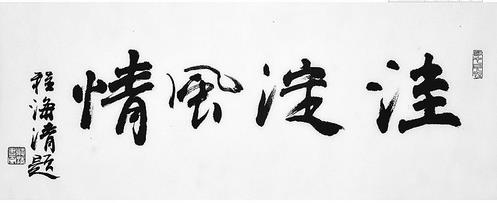 洼淀風情
程海清题